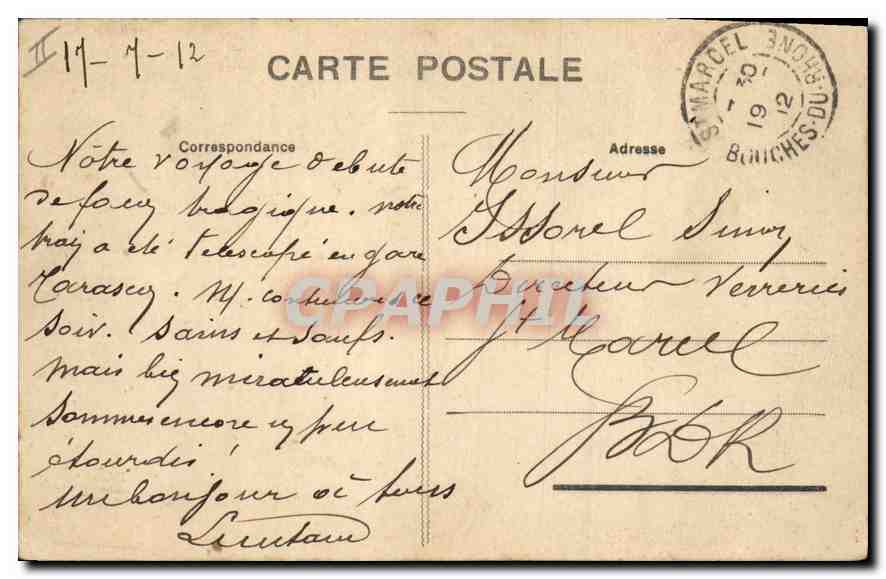 II 17-7-12
CARTE POSTALE
ST MARCEL BOUCHES-DU-RHONE
19 12
Correspondance
Nôtre voyage debute
de facon tragique. notre
train a été telescopé en gare
Tarascon. N. continuons ce
soir. Sains et saufs.
mais bien miraculeusement
Sommes encore un peu
étourdis!
un bonjour à tous
Adresse
Monsieur
Issorel Simon
Directeur Verreries
St Marcel
BDR
CPAPHIL